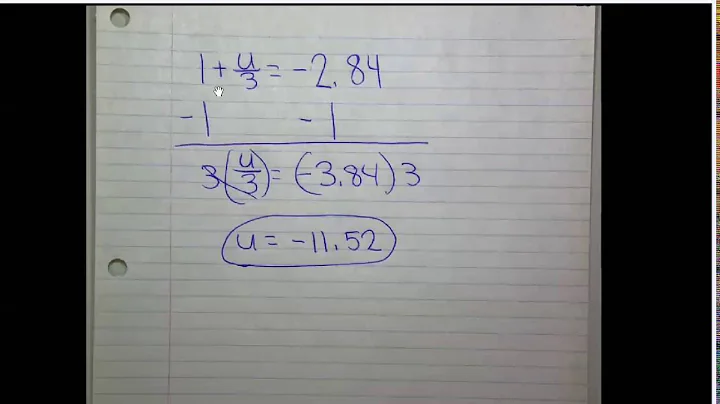 1 + u/3 = -2.84
-1 -1
3(u/3) = (-3.84)3
u = -11.52